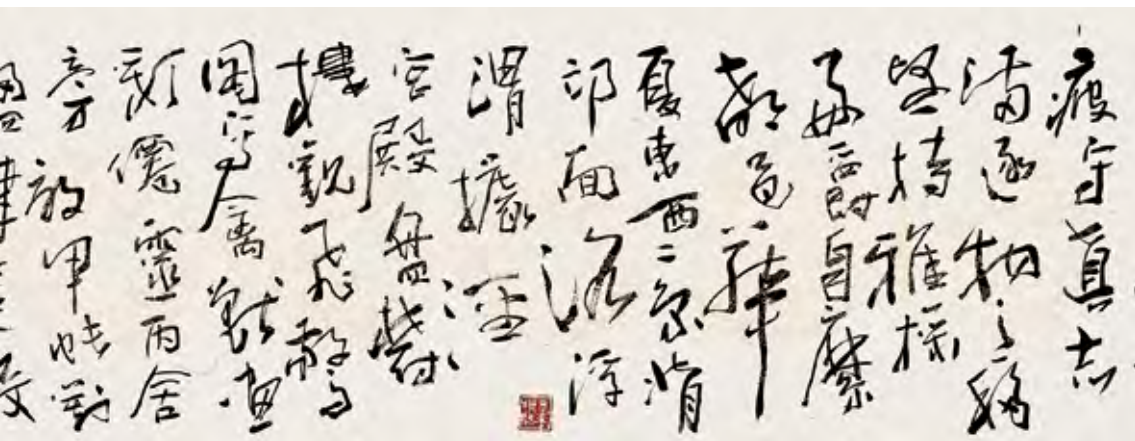 疲守真志
满逐物意移
坚持雅操
好爵自縻
都邑華
夏東西二京背
邙面洛浮
渭據涇
宮殿盤鬱
樓觀飛驚
圖寫禽獸畫
彩僊靈丙舍
旁啟甲帳對